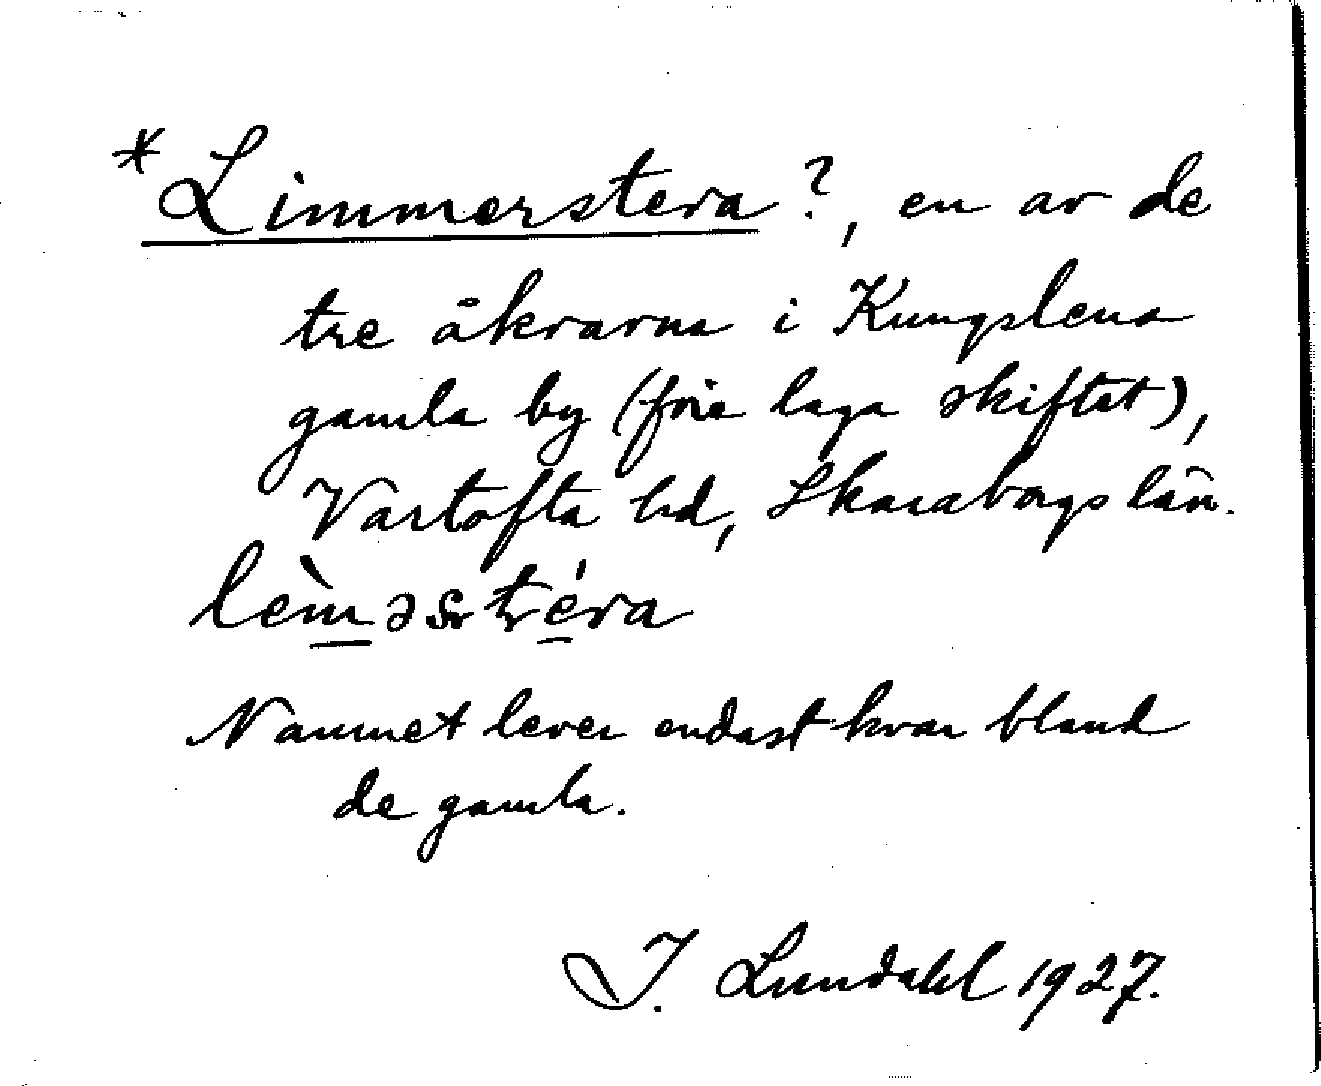 * Limmerstera?, en av de
tre åkrarna i Kungslena
gamla by (före laga skiftet),
Vartofta hd, Skaraborgs län.
lèm̲əsté̲ra
Namnet lever endast kvar bland
de gamla.
I. Lundahl 1927.